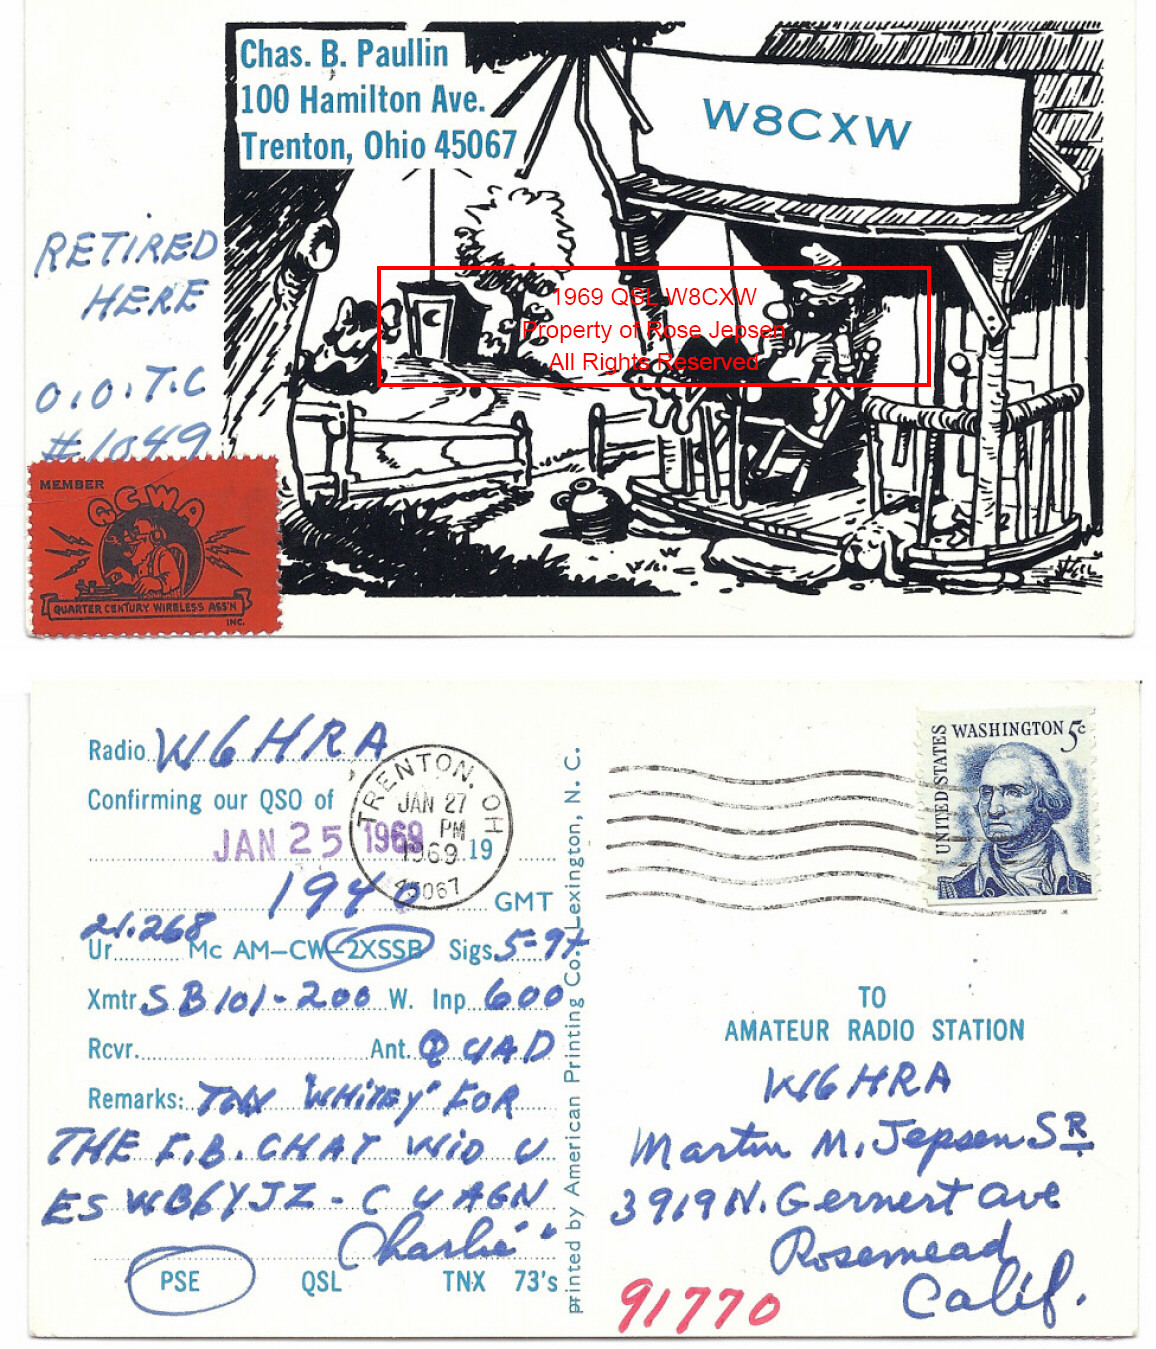 Chas. B. Paullin
100 Hamilton Ave.
Trenton, Ohio 45067
W8CXW
RETIRED
HERE
O.O.T.C
#1049
1969 QSL W8CXW
Property of Rose Jepsen
All Rights Reserved
MEMBER
QCWA
QUARTER CENTURY WIRELESS ASS'N
INC.
Radio W6HRA
Confirming our QSO of
JAN 25 1969 19
TRENTON, OH
JAN 27
PM
1969
45067
1940 GMT
21.268
Ur Mc AM-CW-2XSSB Sigs 5-9+
Xmtr SB101-200 W. Inp 600
Rcvr. Ant. QUAD
Remarks: TNX "WHITEY" FOR
THE F.B. CHAT WID U
ES WB6YJZ - C U AGN
"Charlie"
PSE QSL TNX 73's
printed by American Printing Co. Lexington, N. C.
UNITED STATES
WASHINGTON 5c
TO
AMATEUR RADIO STATION
W6HRA
Martin M. Jepsen SR
3919 N. Gernert Ave
Rosemead
Calif.
91770